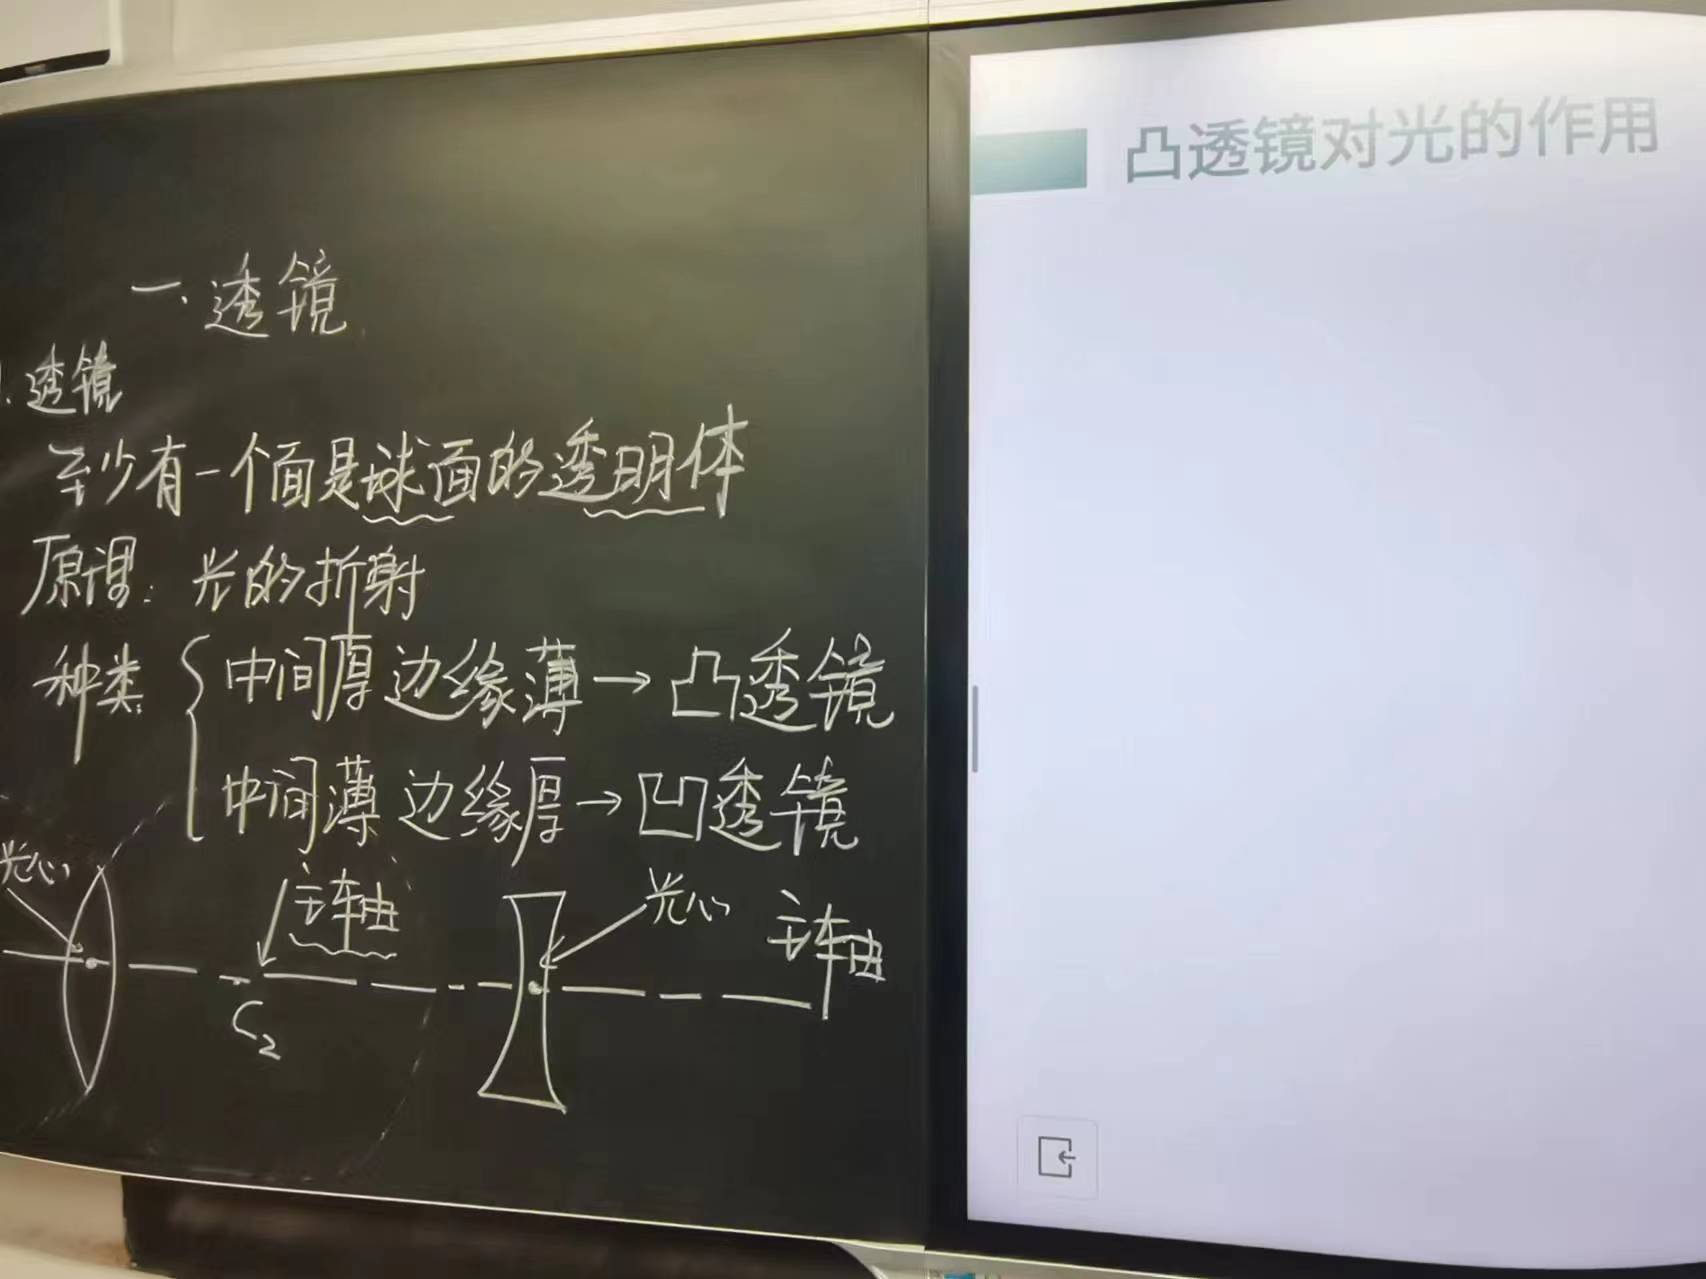 一.透镜
1.透镜
至少有一个面是球面的透明体
原理:光的折射
种类
中间厚边缘薄→凸透镜
中间薄边缘厚→凹透镜
光心
主轴
光心
主轴
C2
凸透镜对光的作用